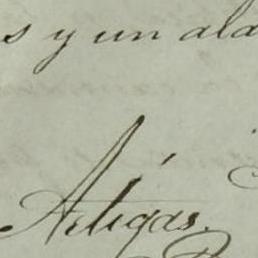 s y un ala
Artigas.